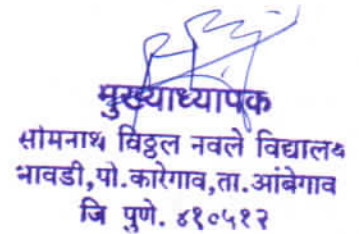 मुख्याध्यापक
सोमनाथ विठ्ठल नवले विद्यालय
भावडी,पो.कारेगाव,ता.आंबेगाव
जि पुणे. ४१०५१२